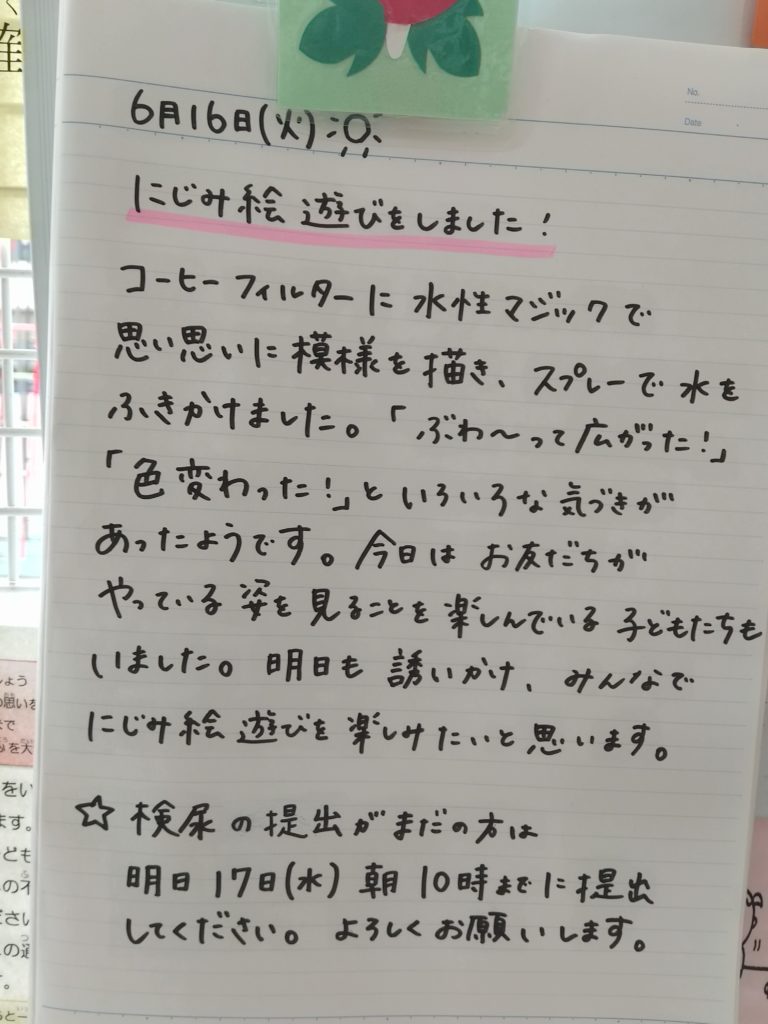 6月16日(火)
No.
Date
にじみ絵遊びをしました!
コーヒーフィルターに水性マジックで
思い思いに模様を描き、スプレーで水を
ふきかけました。「ぶわ〜って広がった!」
「色変わった!」といろいろな気づきが
あったようです。今日はお友だちが
やっている姿を見ることを楽しんでいる子どもたちも
いました。明日も誘いかけ、みんなで
にじみ絵遊びを楽しみたいと思います。
☆検尿の提出がまだの方は
明日17日(水)朝10時までに提出
してください。よろしくお願いします。